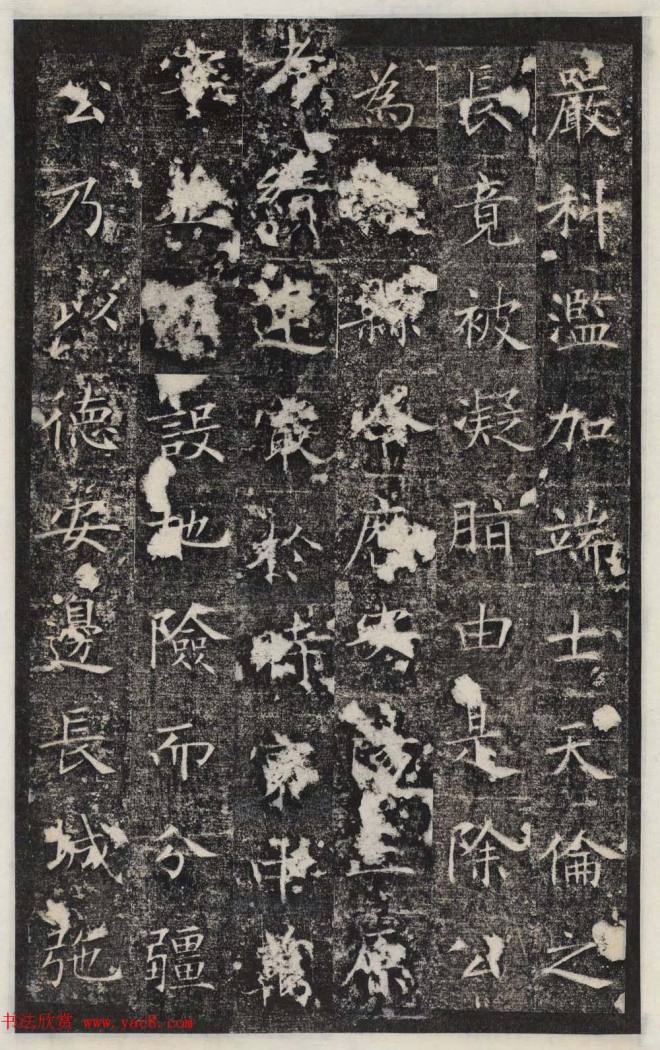 嚴科濫加端士天倫之
長竟被凝脂由是除公
為縣安原
考績連最於時
設地險而分疆
公乃以德安邊長城弛
书法欣赏 www.yac8.com